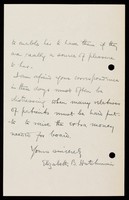 to enable her to have them if they
are really a source of pleasure
to her.
I am afraid your correspondence
in these days must often be
distressing when many relatives
of patients must be hard put
to it to raise the extra money
needed for board.
Yours sincerely
Elizabeth B. Hutchinson